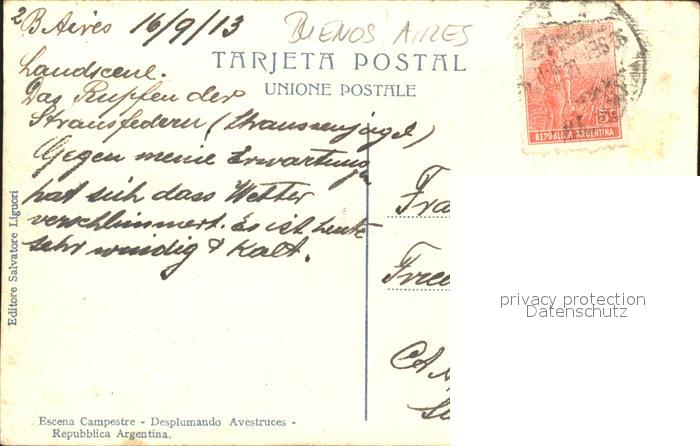 2
B Aires 16/9/13
BUENOS AIRES
TARJETA POSTAL
UNIONE POSTALE
5c
REPUBLICA ARGENTINA
Landscene.
Das Rupfen der
Straussfedern (Straussenjagd)
Gegen meine Erwartung
hat sich dass Wetter
verschlimmert. Es ist heute
sehr windig & kalt.
Fra
Fred
privacy protection
Datenschutz
Editore Salvatore Liguori
Escena Campestre - Desplumando Avestruces -
Repubblica Argentina.